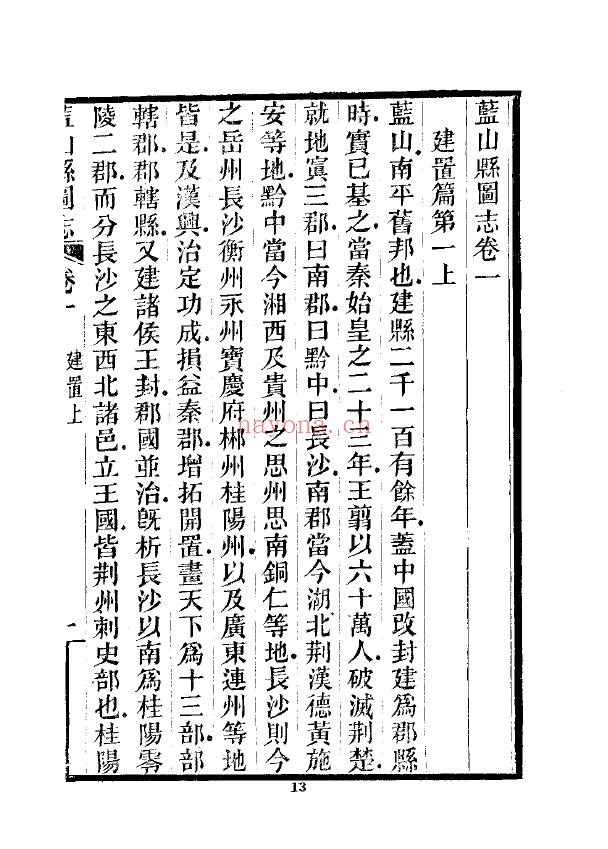 藍山縣圖志卷一
建置篇第一上
藍山南平舊邦也建縣二千一百有餘年蓋中國改封建爲郡縣
時實已基之當秦始皇之二十三年王翦以六十萬人破滅荆楚
就地寘三郡曰南郡曰黔中曰長沙南郡當今湖北荆漢德黃施
安等地黔中當今湘西及貴州之思州思南銅仁等地長沙則今
之岳州長沙衡州永州寶慶府郴州桂陽州以及廣東連州等地
皆是及漢興治定功成損益秦郡增拓開置畫天下爲十三部部
轄郡郡轄縣又建諸侯王封郡國並治旣析長沙以南爲桂陽零
陵二郡而分長沙之東西北諸邑立王國皆荆州刺史部也桂陽
藍山縣圖志 卷一 建置上 一
13
hayong.cn